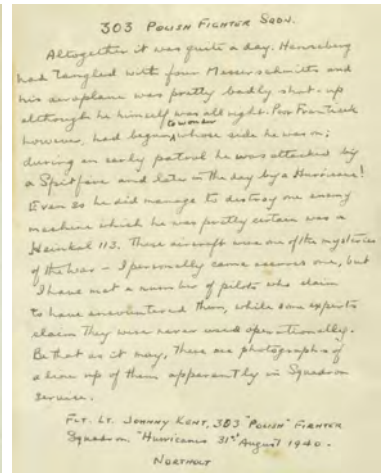 303 POLISH FIGHTER SQDN.
Altogether it was quite a day. Henneberg
had tangled with four Messerschmitts and
his aeroplane was pretty badly shot-up
although he himself was all right. Poor Frantisek
however, had begun to wonder whose side he was on;
during an early patrol he was attacked by
a Spitfire and later in the day by a Hurricane!
Even so he did manage to destroy one enemy
machine which he was pretty certain was a
Heinkel 113. These aircraft were one of the mysteries
of the war – I personally came across one, but
I have met a number of pilots who claim
to have encountered them, while some experts
claim they were never used operationally.
Be that as it may, there are photographs of
a line up of them apparently in Squadron
service.
FLT. LT. JOHNNY KENT, 303 "POLISH" FIGHTER
Squadron "Hurricanes 31st August 1940.
NORTHOLT